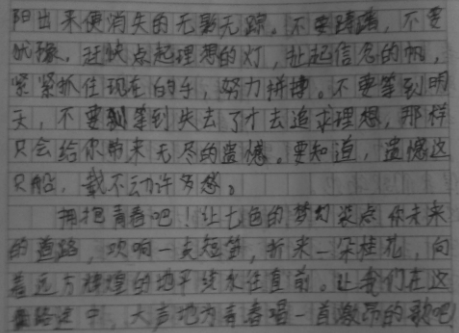 阳出来便消失的无影无踪。不要踌躇，不要
犹豫，赶快点起理想的灯，扯起信念的帆，
紧紧抓住现在的手，努力拼搏。不要等到明
天，不要等到失去了才去追求理想，那样
只会给你带来无尽的遗憾。要知道，遗憾这
只船，载不动许多愁。
拥抱青春吧！让七色的梦幻装点你未来
的道路，吹响一支短笛，折来一朵桂花，向
着远方辉煌的地平线永往直前。让我们在这
中，大声地为青春唱一首激昂的歌吧